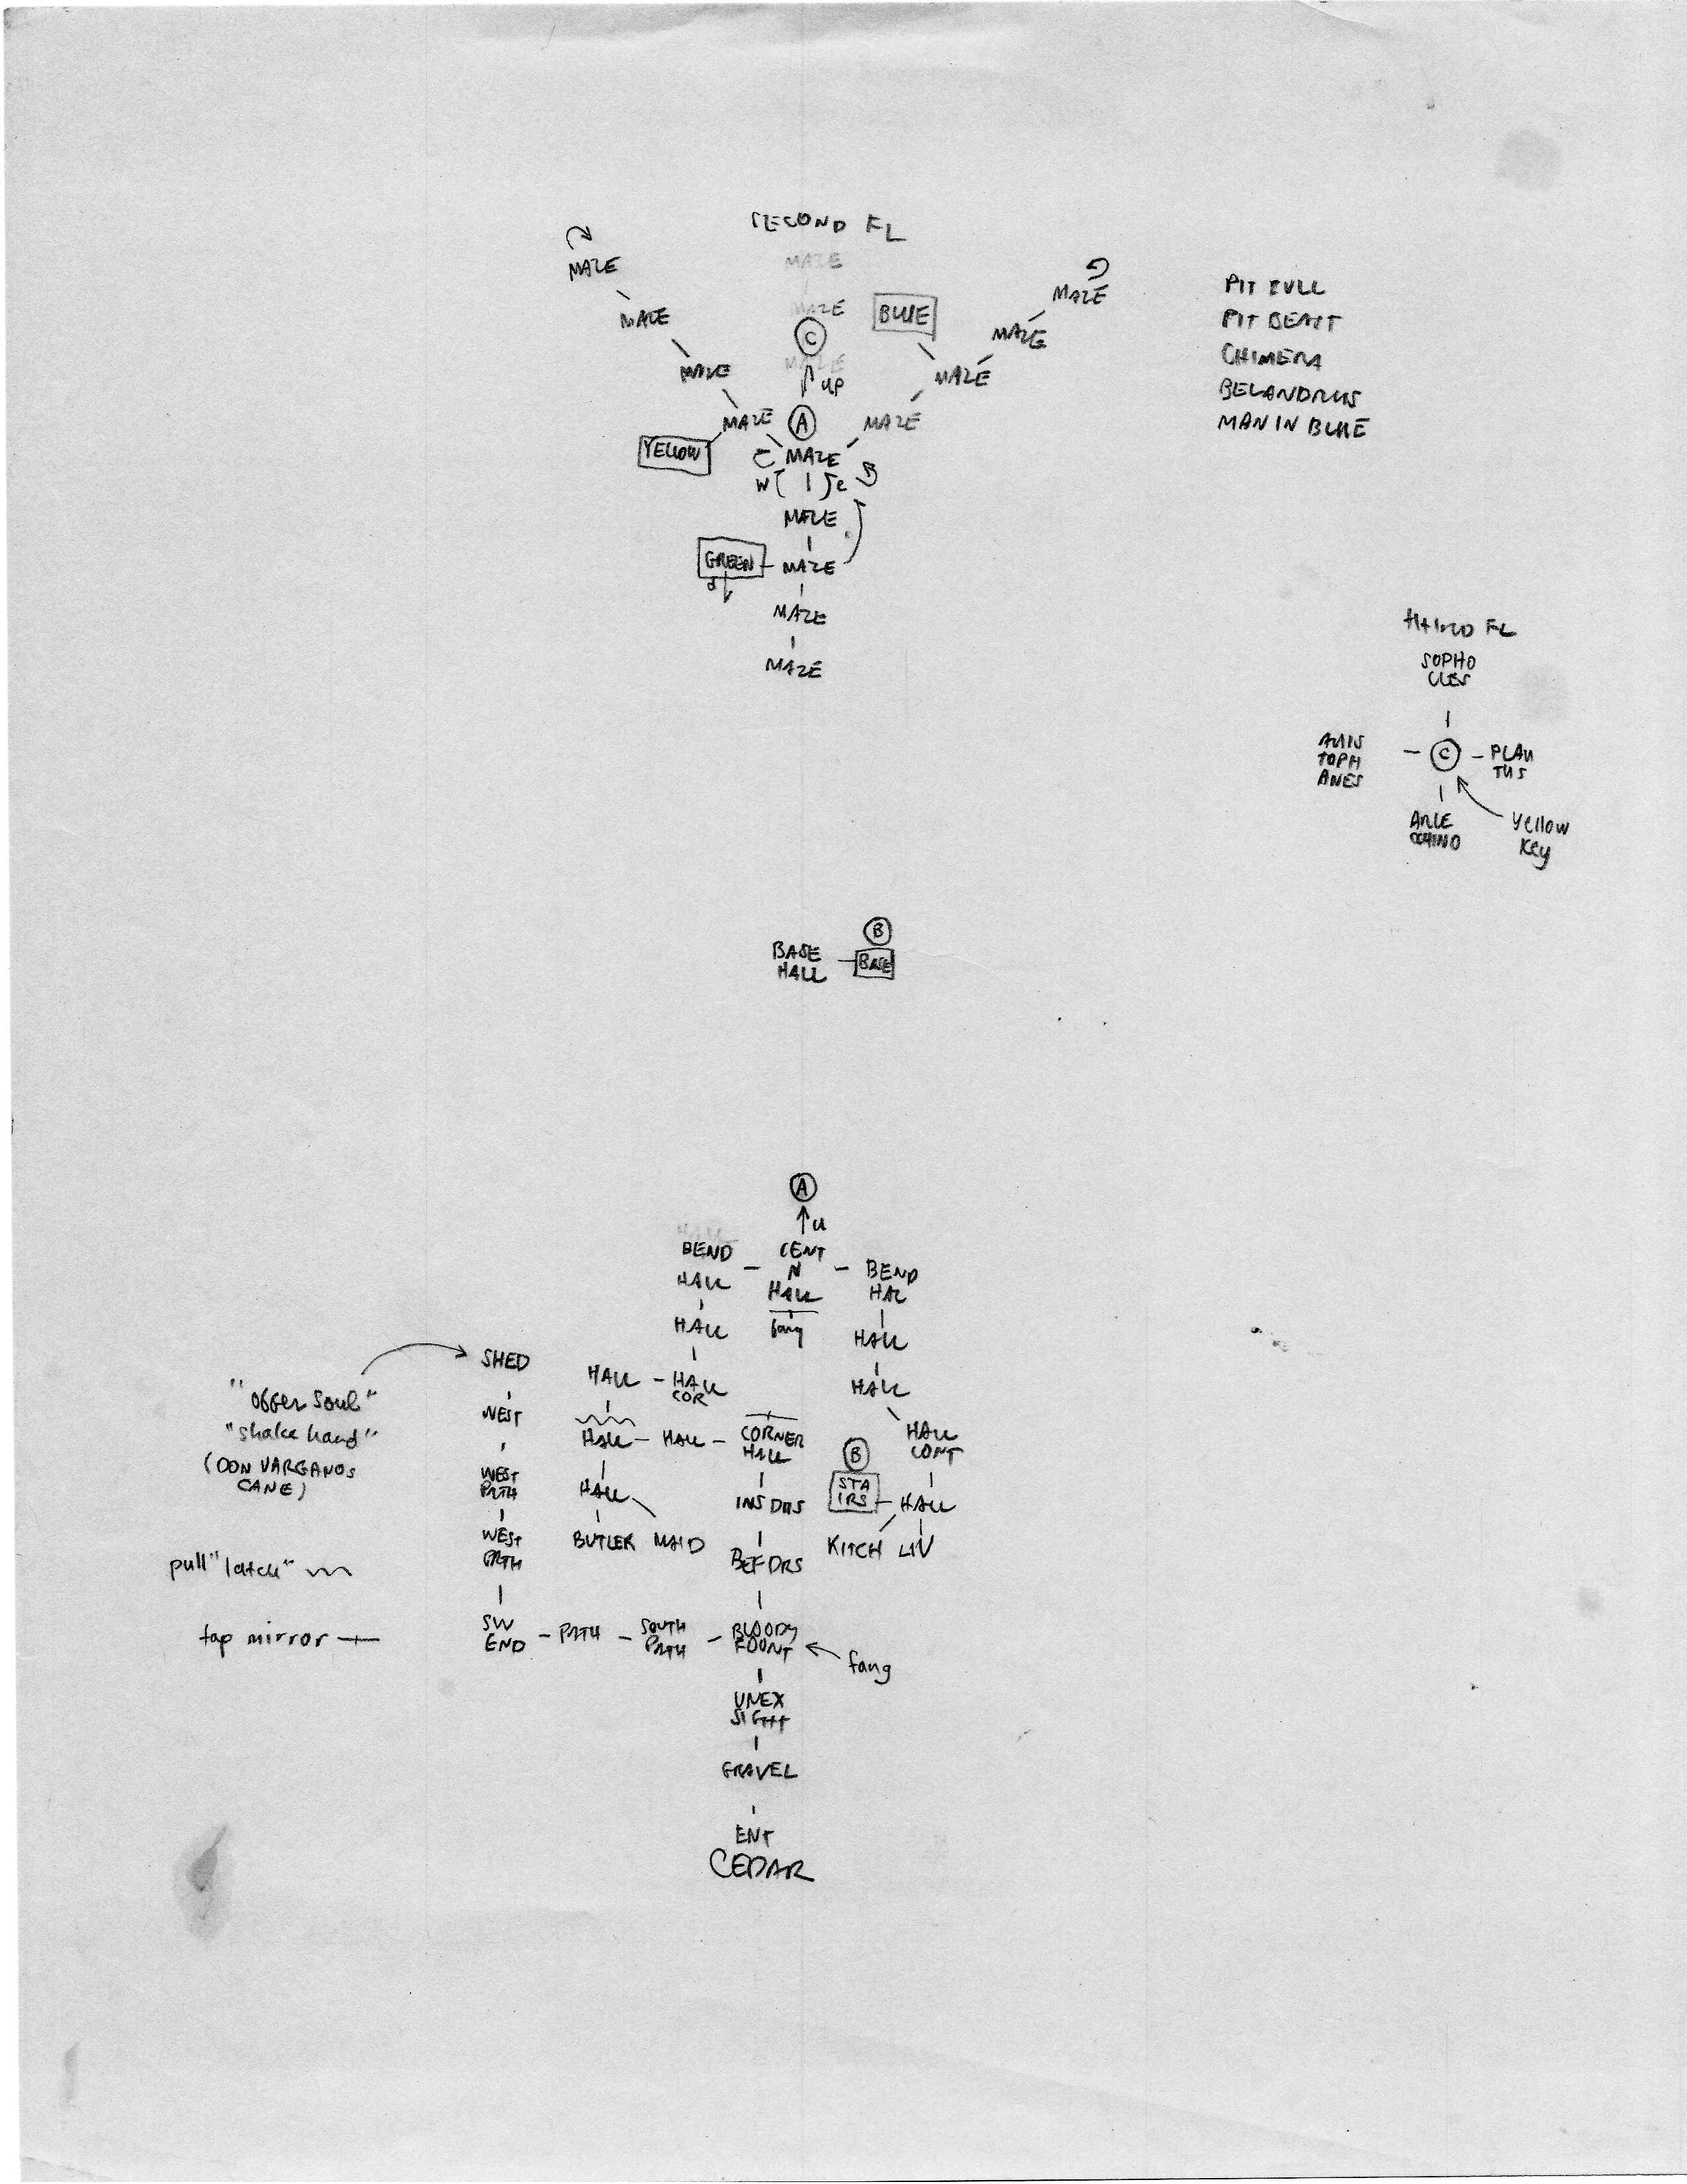 SECOND FL
MAZE
MAZE
MAZE
MAZE
BLUE
MAZE
MAZE
C
MAZE
MAZE
MAZE
UP
MAZE
A
MAZE
YELLOW
MAZE
W
e
MAZE
GREEN
MAZE
d
MAZE
MAZE
PIT BULL
PIT BEAST
CHIMERA
BELANDRUS
MAN IN BLUE
THIRD FL
SOPHO
CLES
ARIS
TOPH
ANES
C
PLAU
TUS
ARLE
CCHINO
yellow
key
B
BASE
HALL
BASE
A
u
BEND
HALL
CENT
N
HALL
BEND
HAL
HALL
fang
HALL
SHED
HALL
HALL
COR
HALL
"offer soul"
"shake hand"
(DON VARGANOS
CANE)
WEST
HALL
HALL
CORNER
HALL
HALL
CONT
B
WEST
PATH
HALL
INS DRS
STA
IRS
HALL
WEST
PATH
BUTLER
MAID
KITCH
LIV
BEF DRS
pull "latch"
tap mirror
SW
END
PATH
SOUTH
PATH
BLOODY
FOUNT
fang
UNEX
SIGHT
GRAVEL
ENT
CEDAR